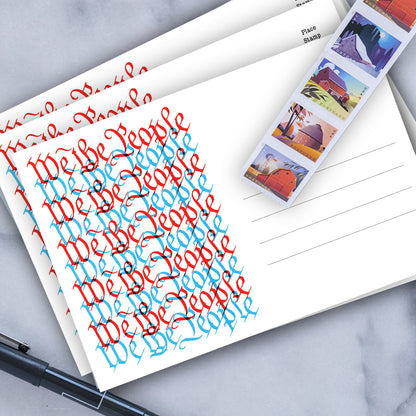 Place
Stamp
We the People
We the People
We the People
We the People
We the People
We the People
We the People
We the People
We the People
We the People